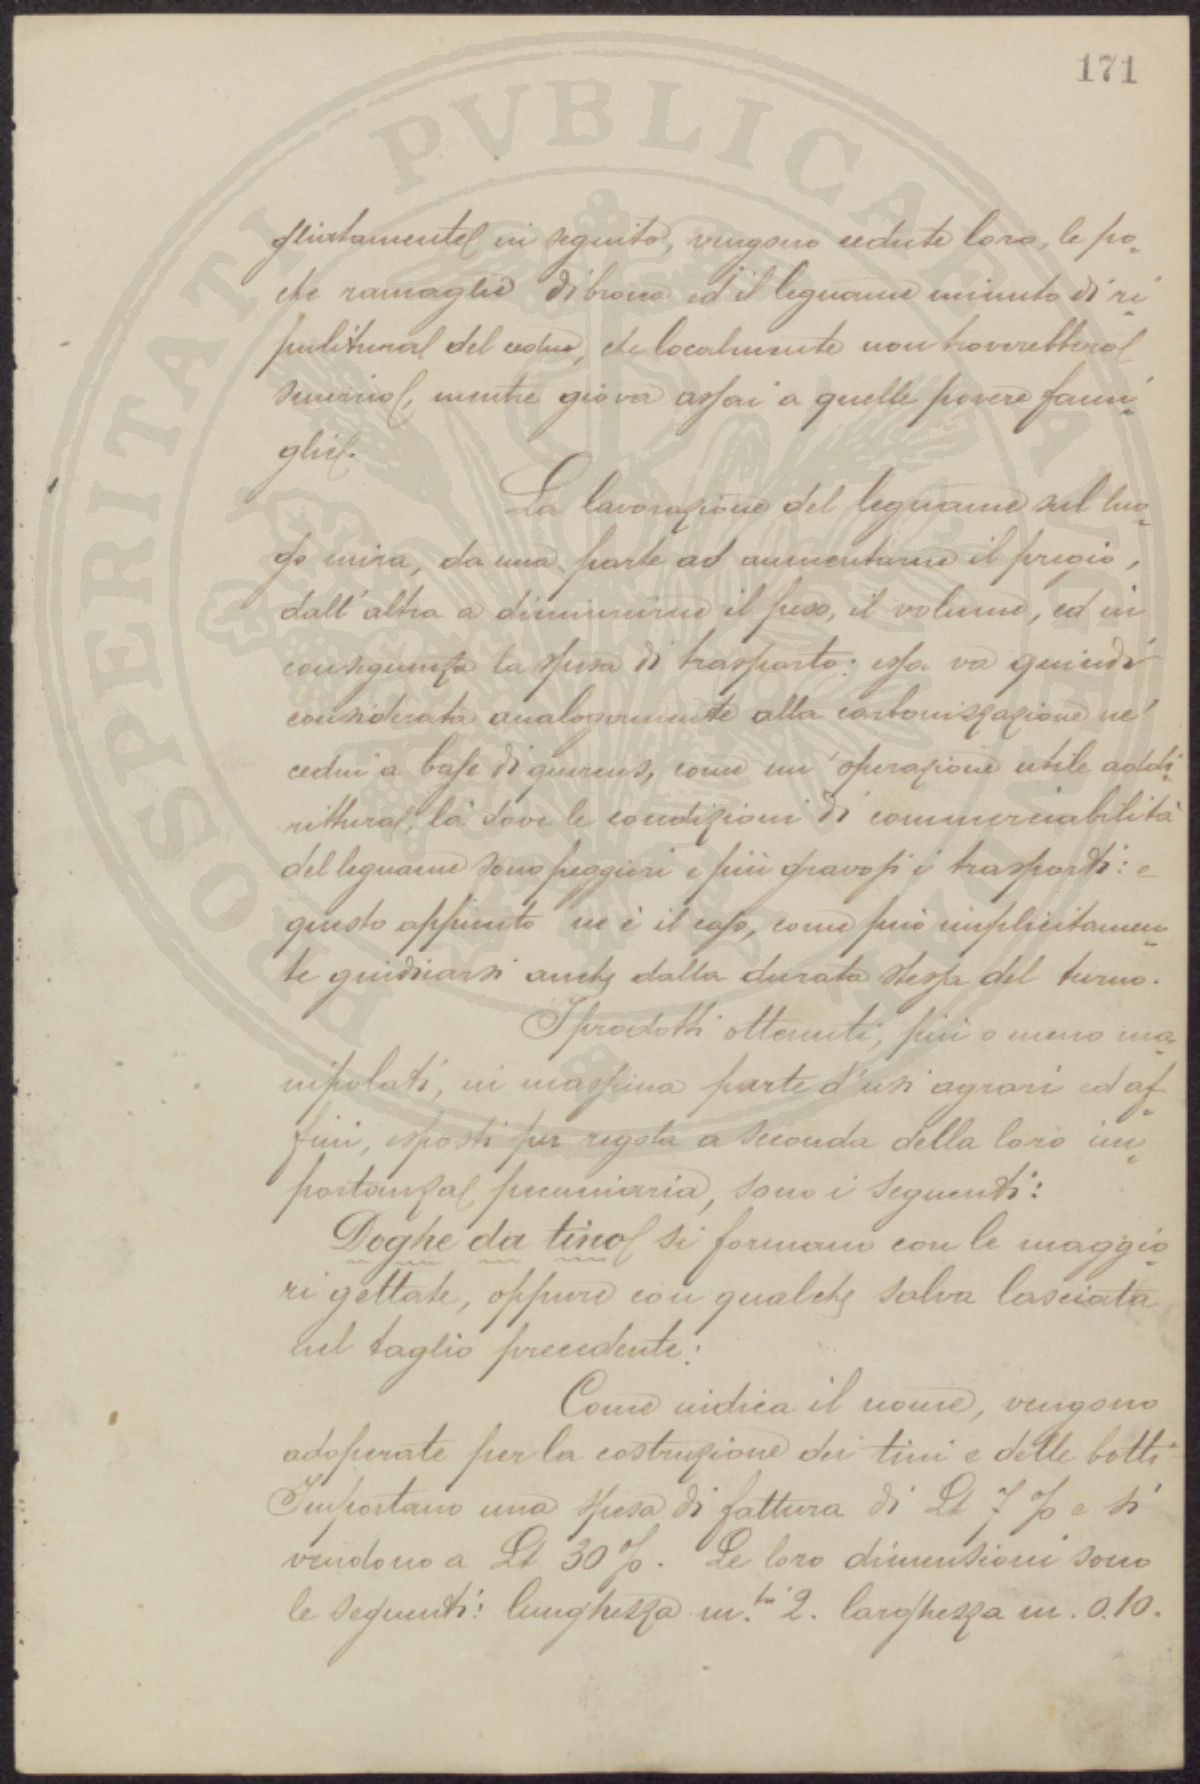 171
gliatamente in seguito, vengono cedute loro, le po-
che ramaglie di brocca ed il legname minuto di ri-
pulitura del ceduo, che localmente non troverebbero
smercio, mentre giova assai a quelle povere fami-
glie.
La lavorazione del legname sul luo-
go mira, da una parte ad aumentarne il pregio,
dall'altra a diminuirne il peso, il volume, ed in
conseguenza la spesa di trasporto: essa va quindi
considerata analogamente alla carbonizzazione ne'
cedui a base di quercus, come un'operazione utile addi-
rittura, là dove le condizioni di commerciabilità
del legname sono peggiori e più gravosi i trasporti: e
questo appunto ne è il caso, come può implicitamen-
te giudicarsi anche dalla durata stessa del turno.
I prodotti ottenuti, più o meno ma-
nipolati, in massima parte d'usi agrari ed af-
fini, esposti per regola a seconda della loro im-
portanza pecuniaria, sono i seguenti:
Doghe da tino si formano con le maggio-
ri gettate, oppure con qualche salva lasciata
nel taglio precedente:
Come indica il nome, vengono
adoperate per la costruzione dei tini e delle botti
Importano una spesa di fattura di Lt 7 % e si
vendono a Lt 30 %. Le loro dimensioni sono
le seguenti: lunghezza m.tri 2. larghezza m. 0.10.
PROSPERITATI PVBLICAE AVGENDAE